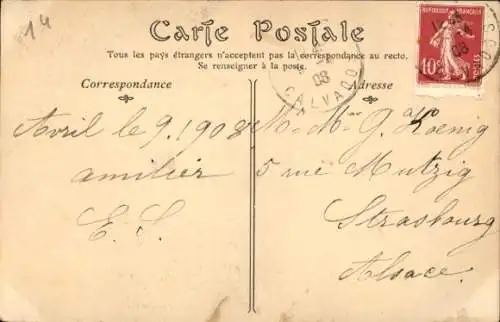 14
Carte Postale
Tous les pays étrangers n'acceptent pas la correspondance au recto.
Se renseigner à la poste.
Correspondance
Adresse
Avril le 9. 1908
amitiés
E. S.
M. Mme G. Koenig
5 rue Mutzig
Strasbourg
Alsace.
RÉPUBLIQUE FRANÇAISE
10c
POSTES
08
CALVADOS
08